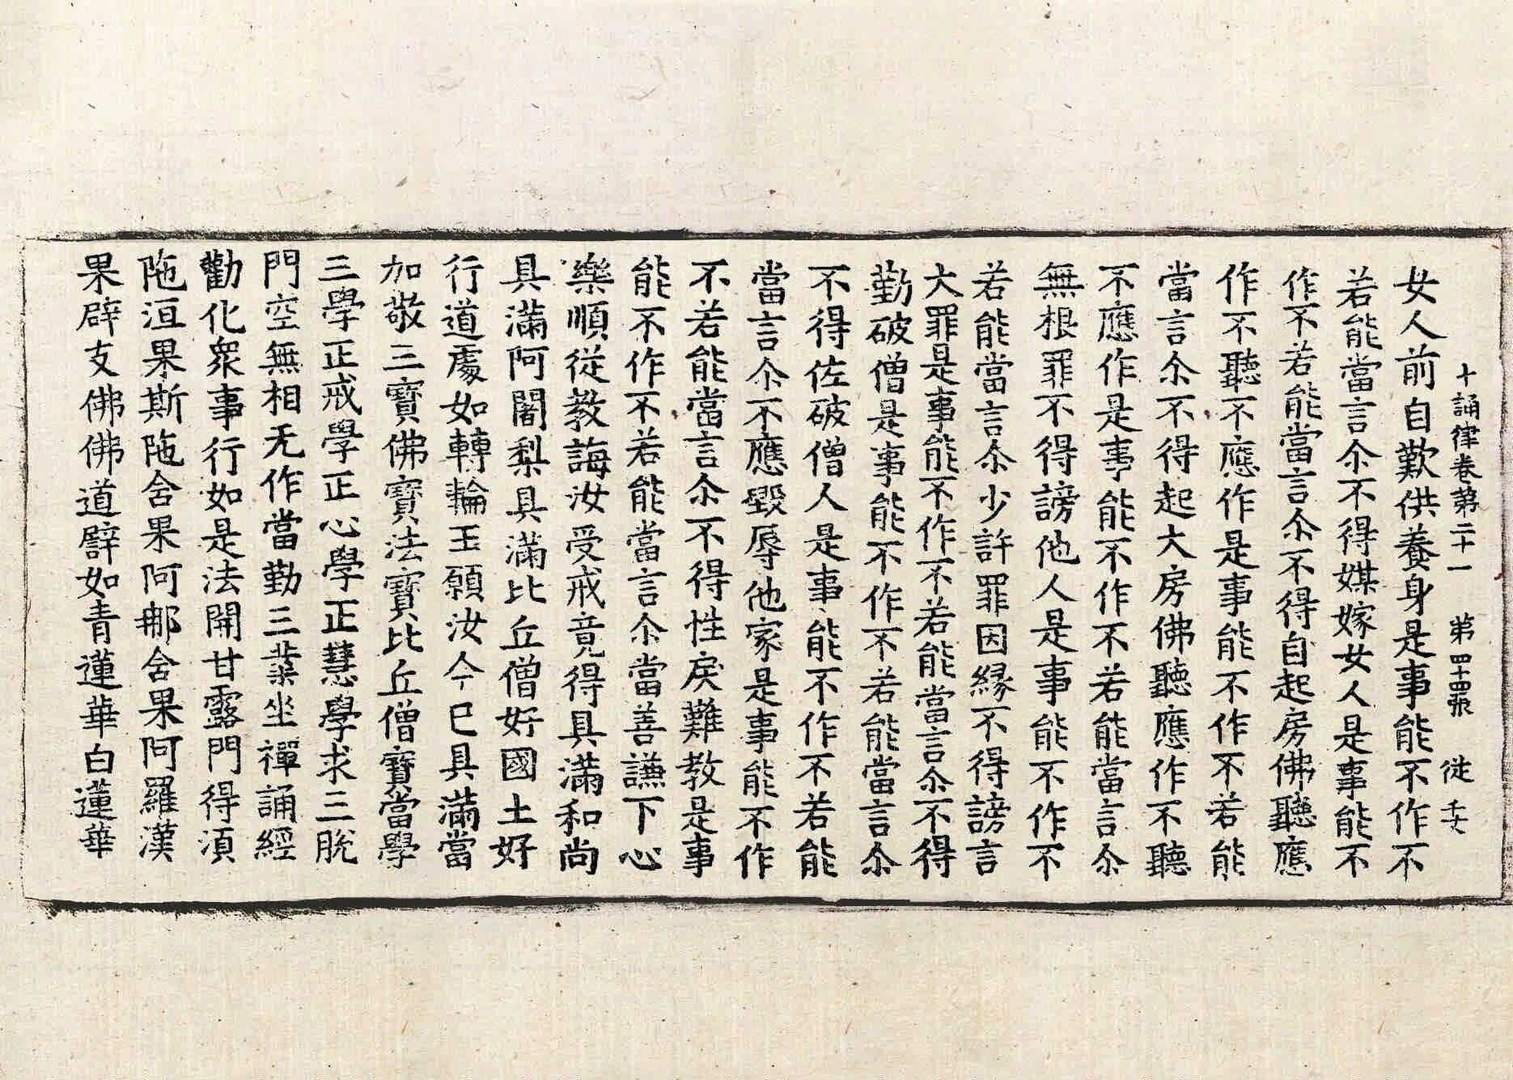 十誦律卷第二十一 第四十四張 徒
女人前自歎供養身是事能不作不
若能當言尒不得媒嫁女人是事能不
作不若能當言尒不得自起房佛聽應
作不聽不應作是事能不作不若能
當言尒不得起大房佛聽應作不聽
不應作是事能不作不若能當言尒
無根罪不得謗他人是事能不作不
若能當言尒少許罪因縁不得謗言
大罪是事能不作不若能當言尒不得
勤破僧是事能不作不若能當言尒
不得佐破僧人是事能不作不若能
當言尒不應毀辱他家是事能不作
不若能當言尒不得性戾難教是事
能不作不若能當言尒當善謙下心
樂順従教誨汝受戒竟得具滿和尚
具滿阿闍梨具滿比丘僧好國土好
行道處如轉輪王願汝今已具滿當
加敬三寶佛寶法寶比丘僧寶當學
三學正戒學正心學正慧學求三脫
門空無相无作當勤三業坐禪誦經
勸化衆事行如是法開甘露門得湏
陁洹果斯陁含果阿那含果阿羅漢
果辟支佛佛道譬如青蓮華白蓮華